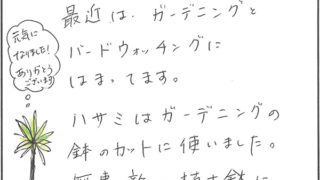 元気に
なりました!
ありがとう
ございます!
最近は、ガーデニングと
バードウォッチングに
はまってます。
ハサミはガーデニングの
鉢のカットに使いました。